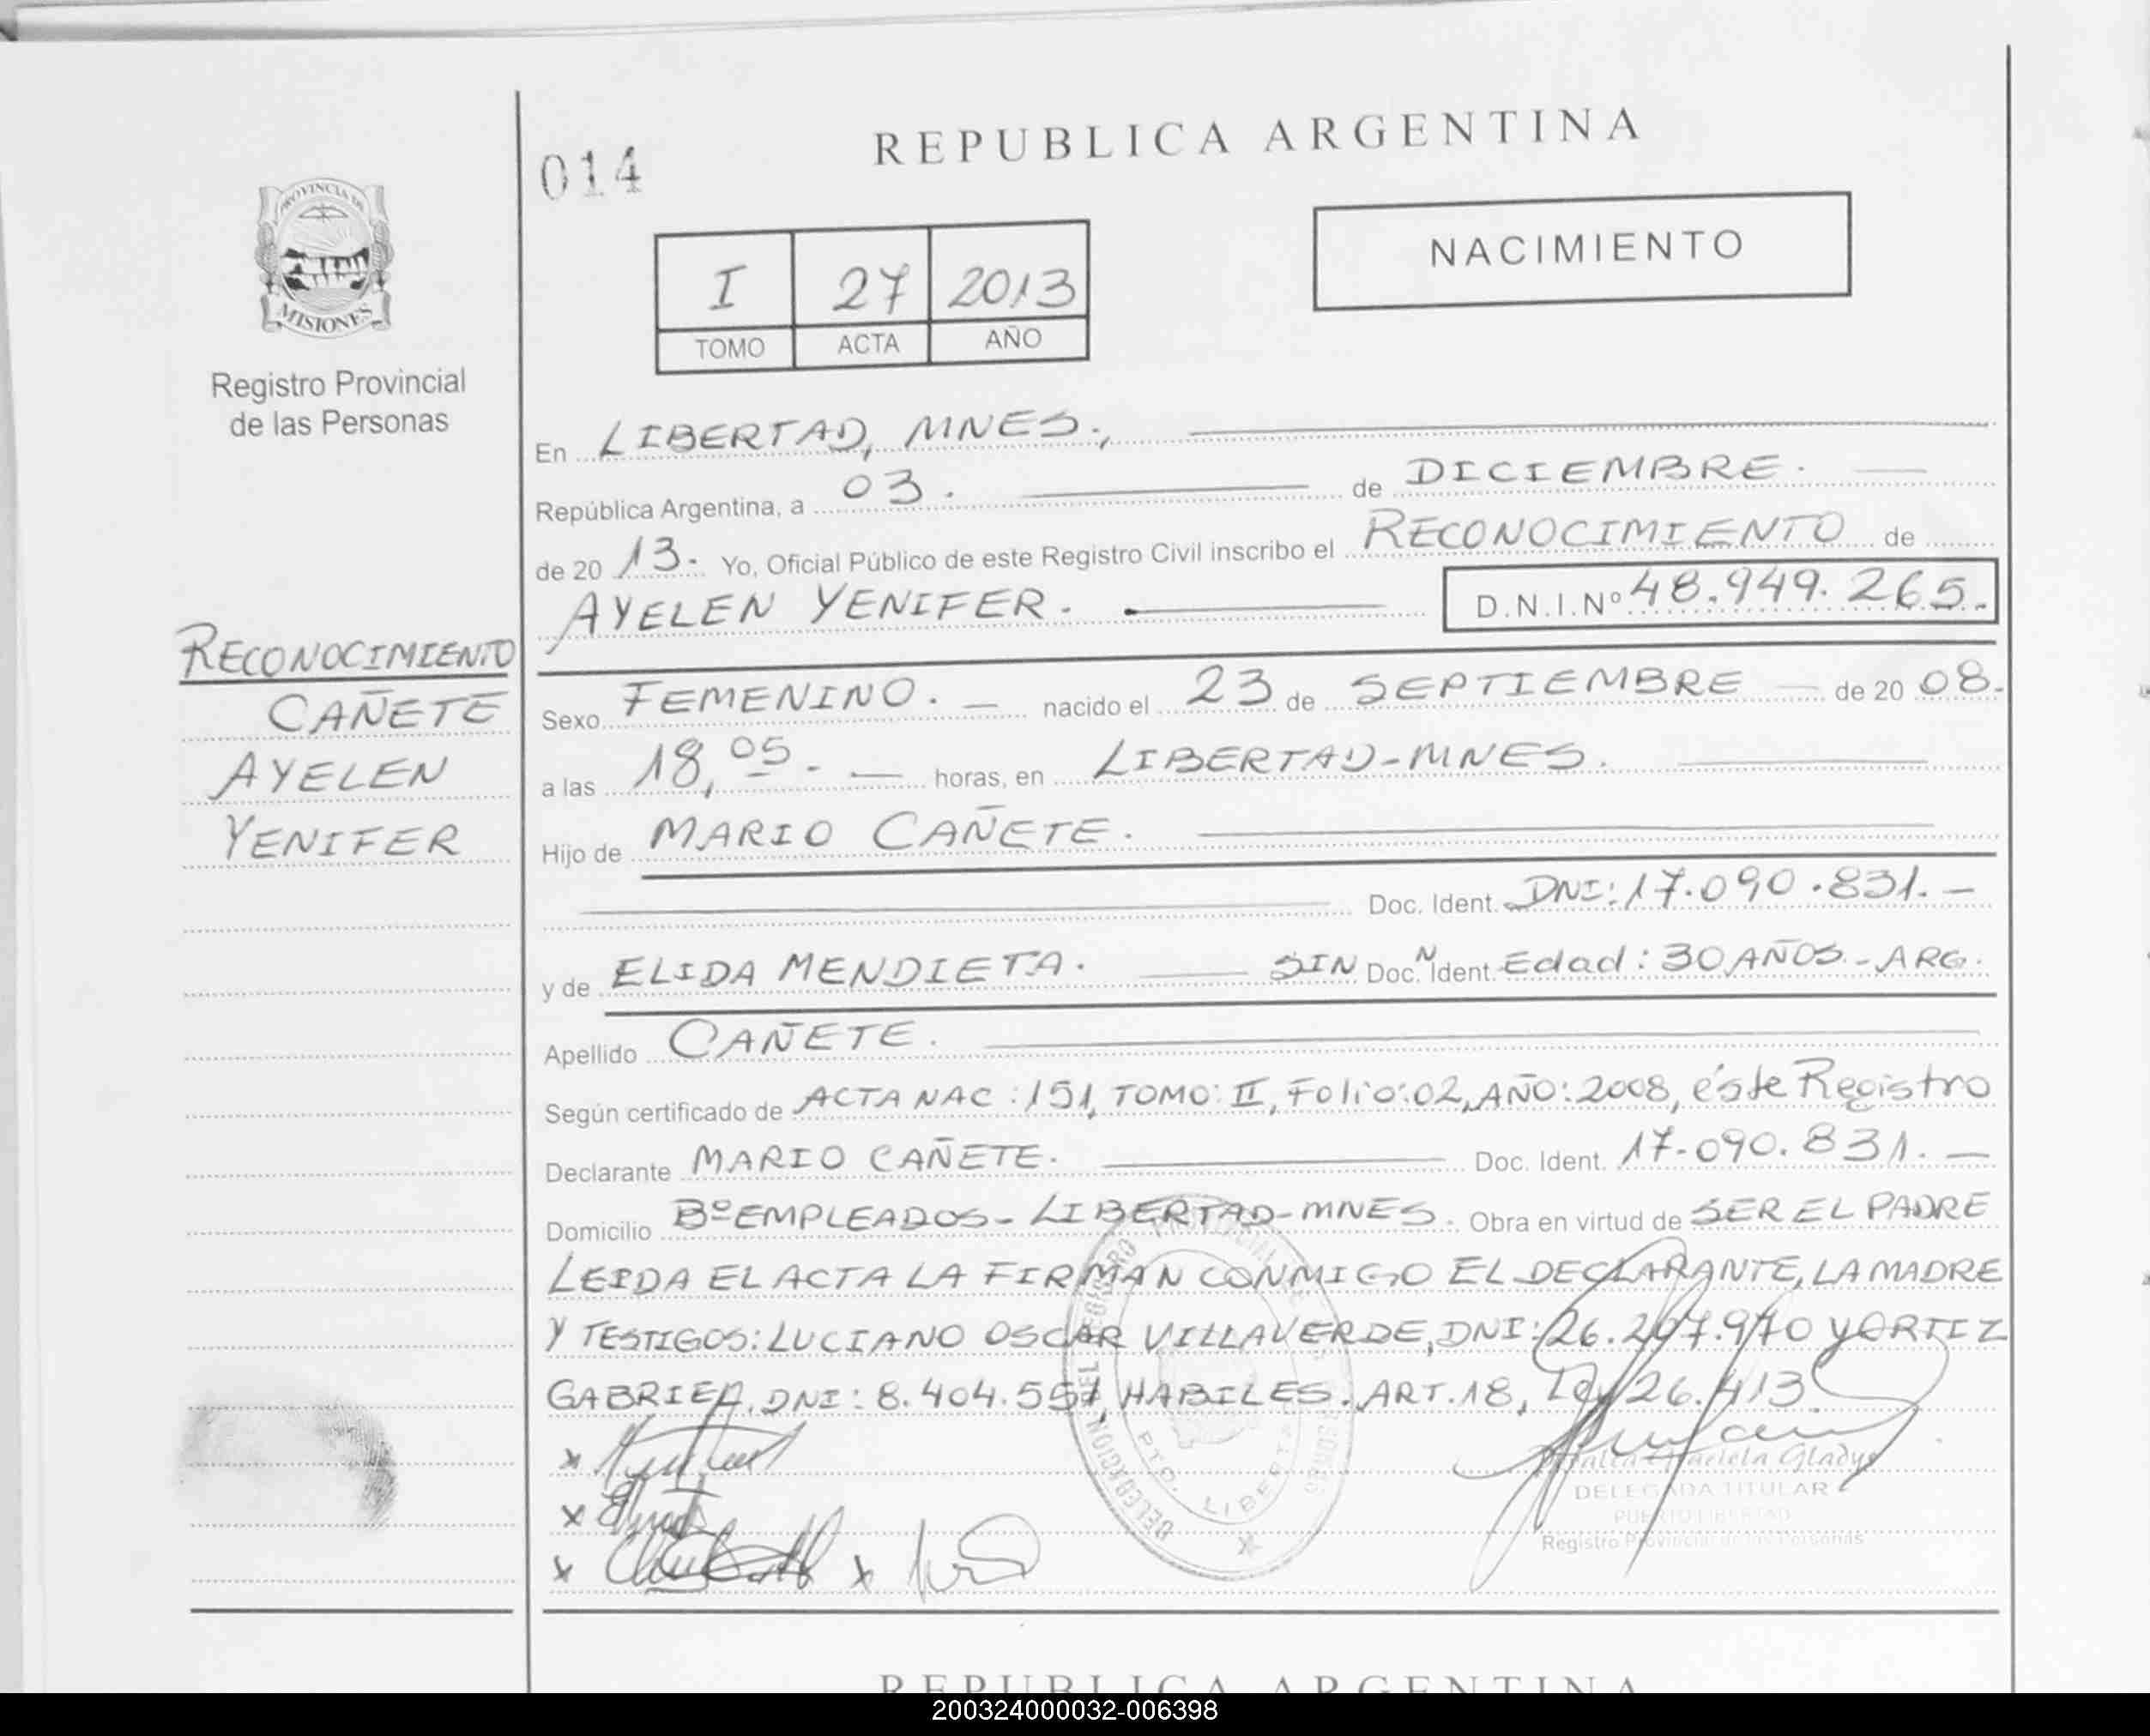 REPUBLICA ARGENTINA
014
PROVINCIA DE
MISIONES
Registro Provincial
de las Personas
NACIMIENTO
I 27 2013
TOMO ACTA AÑO
En LIBERTAD, MNES.,
República Argentina, a 03. de DICIEMBRE.
de 20 13. Yo, Oficial Público de este Registro Civil inscribo el RECONOCIMIENTO de
AYELEN YENIFER. D.N.I.Nº 48.949.265.
RECONOCIMIENTO
CAÑETE
AYELEN
YENIFER
Sexo FEMENINO. nacido el 23 de SEPTIEMBRE de 20 08.
a las 18,05. horas, en LIBERTAD-MNES.
Hijo de MARIO CAÑETE.
Doc. Ident. DNI: 17.090.831.
y de ELIDA MENDIETA. SIN Doc. N Ident. Edad: 30 AÑOS-ARG.
Apellido CAÑETE.
Según certificado de ACTA NAC: 151, TOMO: II, Folio: 02, AÑO: 2008, éste Registro
Declarante MARIO CAÑETE. Doc. Ident. 17.090.831.
Domicilio Bº EMPLEADOS-LIBERTAD-MNES. Obra en virtud de SER EL PADRE
LEIDA EL ACTA LA FIRMAN CONMIGO EL DECLARANTE, LA MADRE
Y TESTIGOS: LUCIANO OSCAR VILLAVERDE, DNI: 26.297.970 y ORTIZ
GABRIEL, DNI: 8.404.557, HABILES. ART.18, Ley 26.413.
PTO. LIBERTAD
Graciela Gladys
DELEGADA TITULAR
PUERTO LIBERTAD
Registro Provincial de las Personas
REPUBLICA ARGENTINA
200324000032-006398